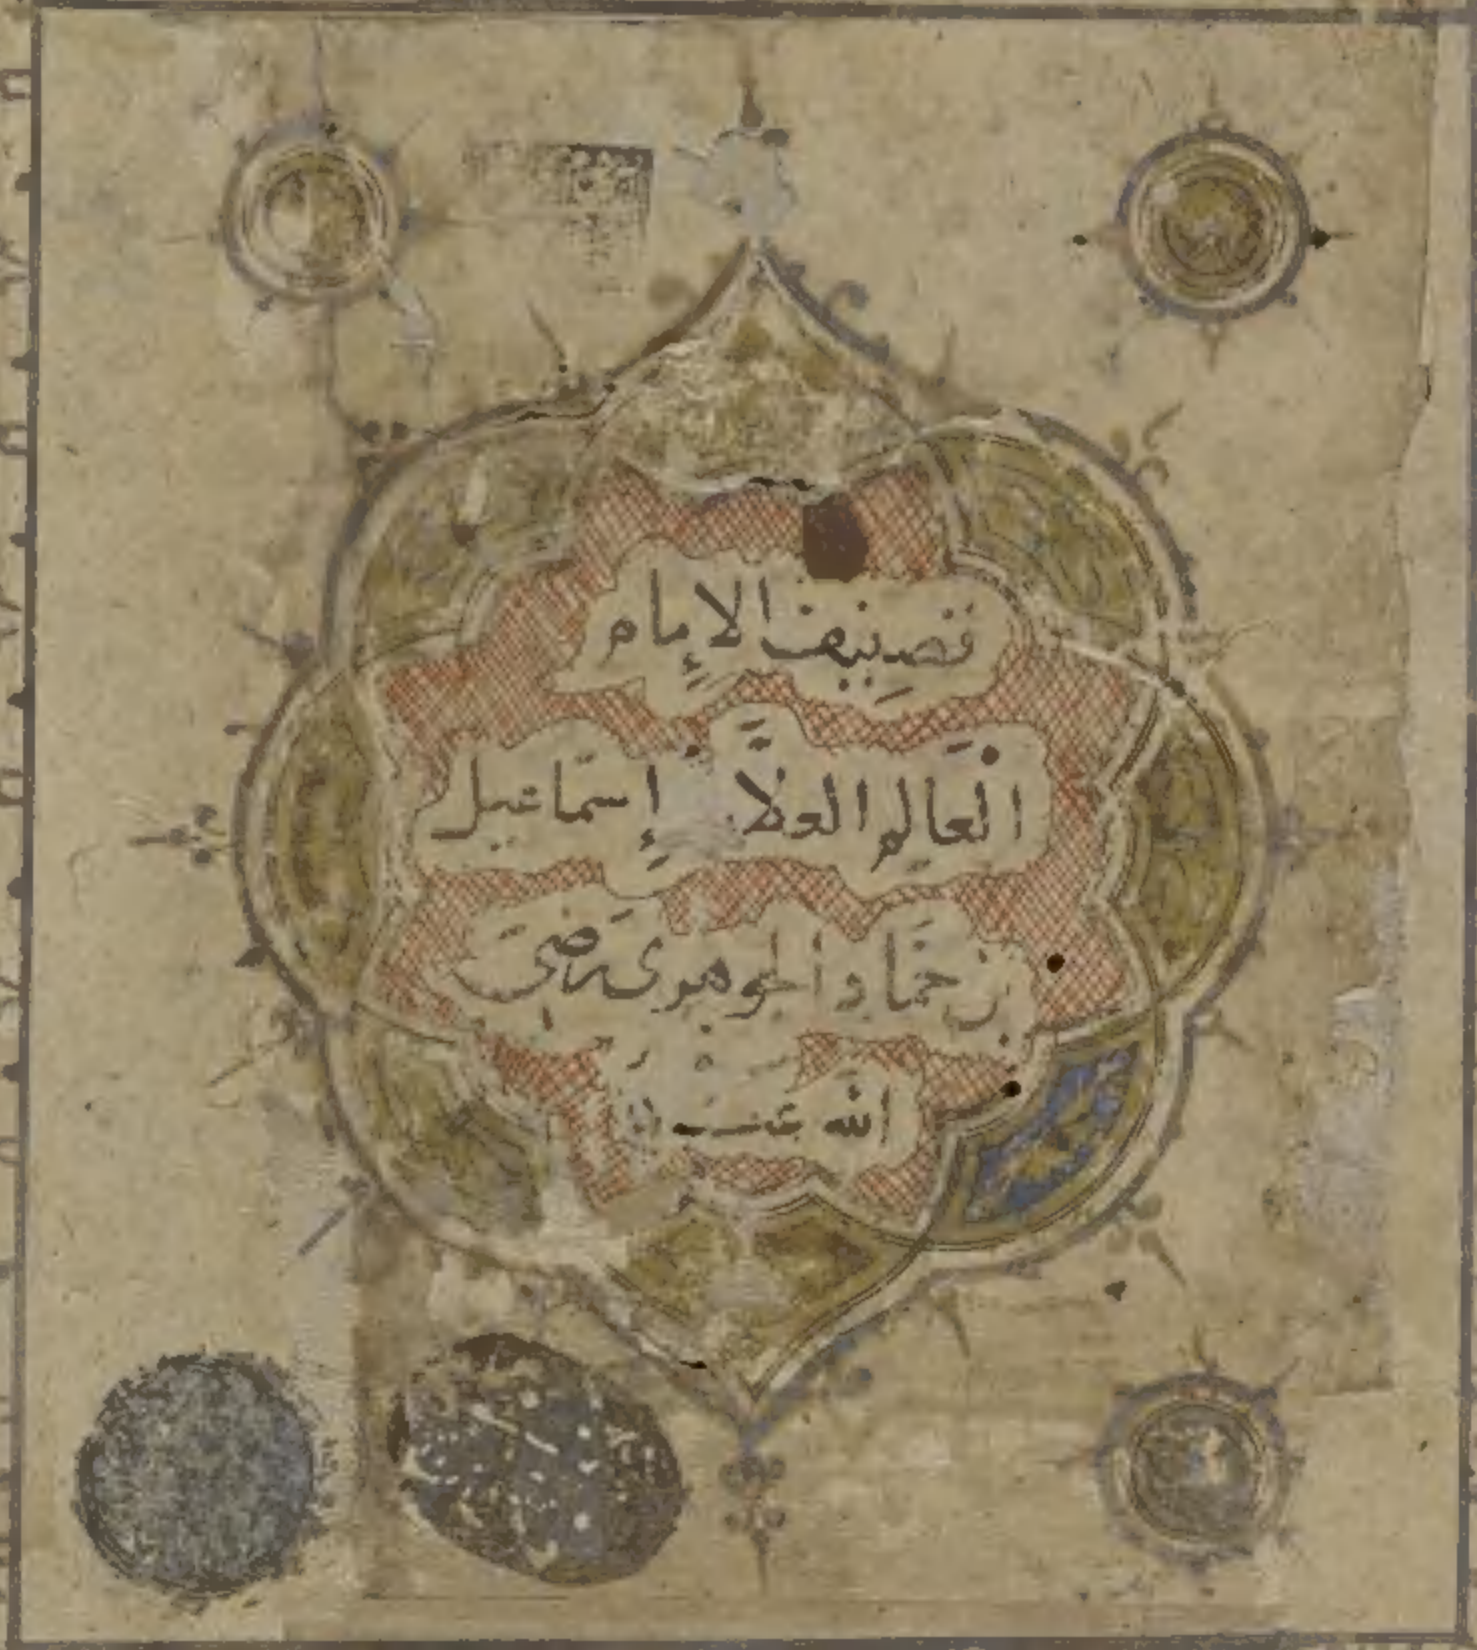 تصنيف الإمام
العالم العلامة إسماعيل
بن حماد الجوهرى رضي
الله عنه